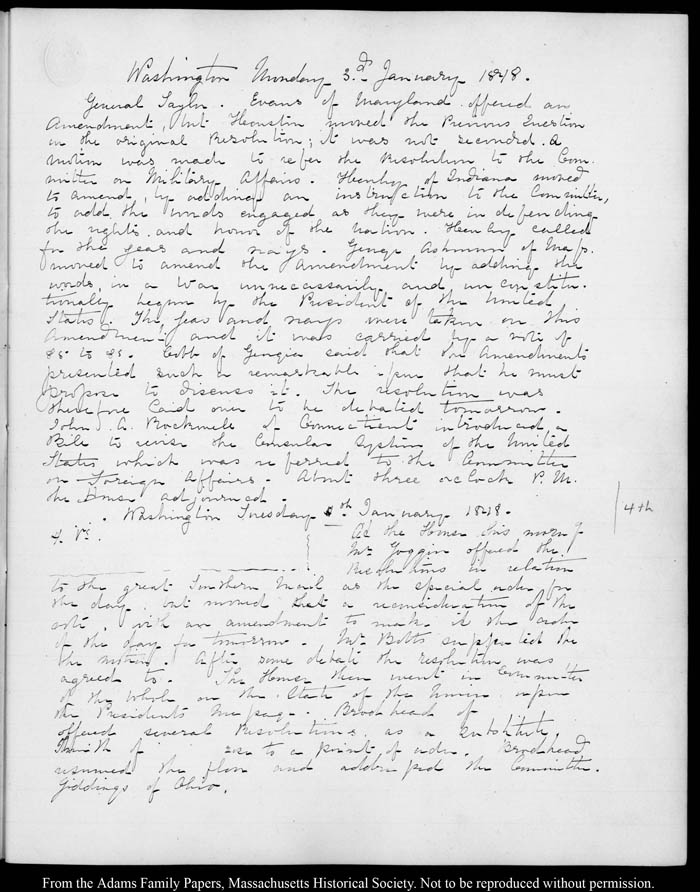 Washington Monday 3.d January 1848.
General Taylor. Evans of Maryland offered an
Amendment, but Houston moved the Previous Question
on the original Resolution; it was not seconded. A
motion was made to refer the Resolution to the Com-
mittee on Military Affairs. Henley of Indiana moved
to amend, by adding an instruction to the Committee,
to add the words engaged as they were in defending
the rights and honor of the Nation. Henley called
for the yeas and nays. George Ashmun of Mass.
moved to amend the Amendment by adding the
words, in a War unnecessarily and unconstitu-
tionally begun by the President of the United
States. The yeas and nays were taken on this
Amendment and it was carried by a vote of
85 to 81. Cobb of Georgia said that the Amendments
presented such a remarkable that he must
propose to discuss it. The resolution was
therefore laid over to be debated tomorrow.
John A. Rockwell of Connecticut introduced a
Bill to revise the Consular System of the United
States which was referred to the Committee
on Foreign Affairs. About three oclock P.M.
the House adjourned.
Washington Tuesday th January 1848.
4th
4. VI.
At the House this morng
Mr Goggin offered the
Resolutions in relation
to the great Southern Mail as the special order for
the day, but moved that a reconsideration of the
vote, with an amendment to make it the order
of the day for tomorrow. Mr Botts supported the
the motion. After some debate the resolution was
agreed to. The House then went in Committee
of the Whole on the State of the Union upon
the Presidents Message. Brodhead of
offered several Resolutions as a substitute,
Smith of rose to a point of order. Brodhead
resumed the floor and addressed the Committee.
Giddings of Ohio.
From the Adams Family Papers, Massachusetts Historical Society. Not to be reproduced without permission.